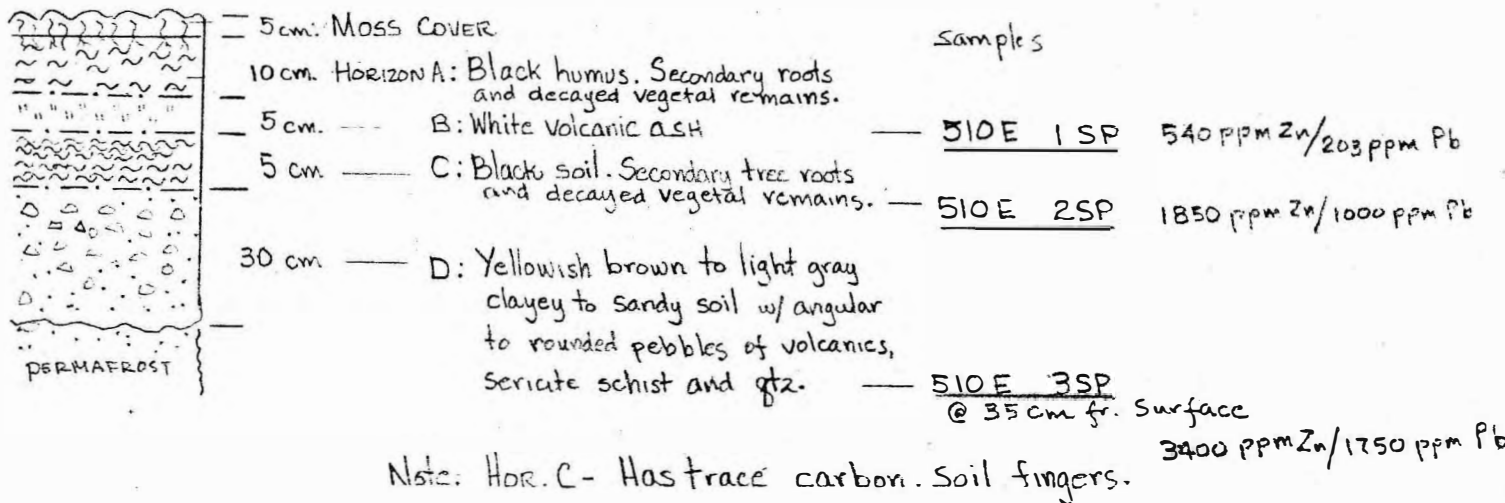 5cm: MOSS COVER
samples
10cm. HORIZON A: Black humus. Secondary roots
and decayed vegetal remains.
5cm. B: White volcanic ASH
510E 1SP 540 ppm Zn/203 ppm Pb
5 cm C: Black soil. Secondary tree roots
and decayed vegetal remains.
510E 2SP 1850 ppm Zn/1000 ppm Pb
30 cm D: Yellowish brown to light gray
clayey to sandy soil w/ angular
to rounded pebbles of volcanics,
PERMAFROST
sericite schist and qtz.
510E 3SP
@ 35 cm fr. Surface
3400 ppm Zn/1750 ppm Pb
Note: HOR. C- Has trace carbon. Soil fingers.